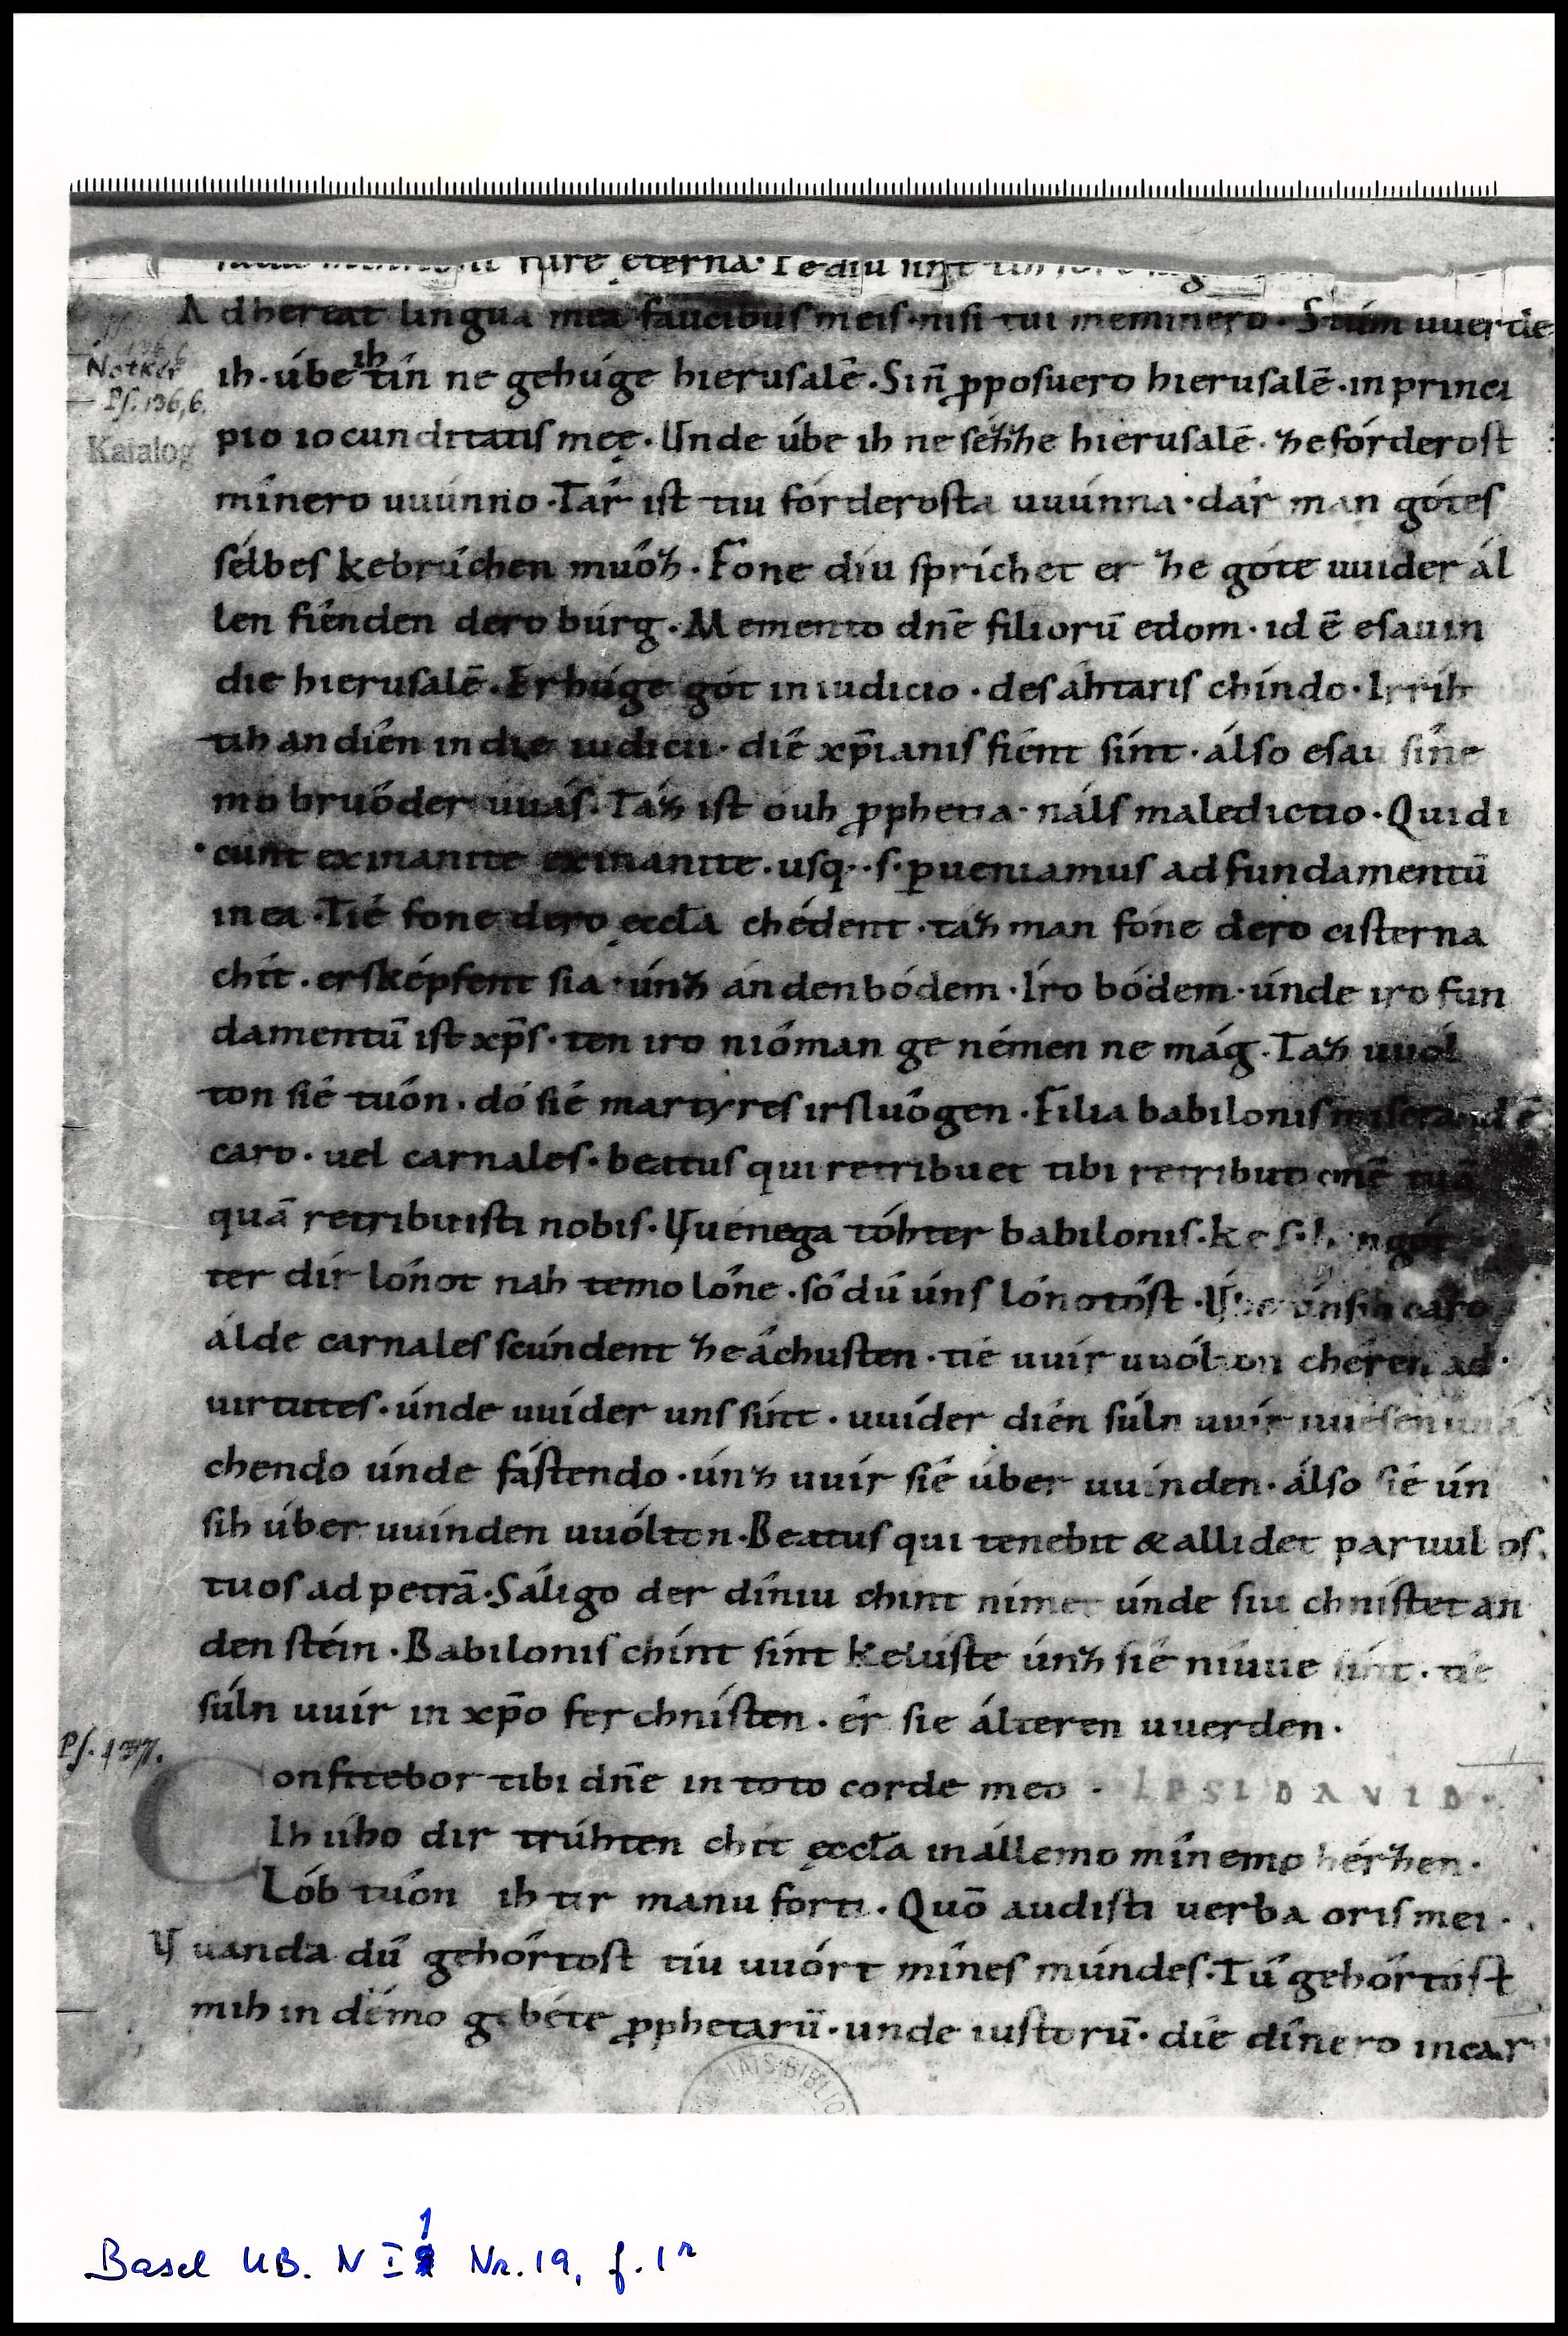 rure ęterna. Te diu
Adhereat lingua mea faucibus meis. nisi tui meminero. Stúm uuerde
Notker
Ps. 136,6.
Katalog
ih. úbe ih tín ne gehúge hierusalē. Sin̄ ꝓposuero hierusalē. in princi
pio iocunditatis meę. Unde úbe ih ne sézze hierusalē. ze fórderost
mînero uuúnno. Târ ist tiu fórderosta uuúnna. dâr man gótes
sélbes kebrûchen muôz. Fone díu sprichet er ze góte uuider ál
len fiênden dero búrg. Memento dn̄e filiorū edom. id ē esau in
die hierusalē. Erhúge gót in iudicio. des ahtaris chindo. Irrih
tih an diên in die iudicii. diê xp̄ianis fîent sínt. álso esau sîne
mo bruôder uuás. Táz ist ouh ꝓphetia. náls maledictio. Qui di
cunt exinanite exinanite. usq. .s. ꝑueniamus ad fundamentū
in ea. Tié fone dero ęccła chédent. táz man fóne dero cisterna
chît. ersképfent sia. únz án den bódem. Íro bódem. únde iro fun
damentū ist xp̄s. ten iro nióman ge némen ne mág. Taz uuól
ton siê tuôn. dó siê martyres irsluôgen. Filia babilonis misera. id ē
caro. uel carnales. beatus qui retribuet tibi retributionē tuā
quā retribuisti nobis. Uuênega tóhter babilonis.
ter dir lônot nah temo lône. sô dû úns lônotôst. Úbe únsih caro
álde carnales scúndent ze âchusten. tiê uuir uuólton chêren ad
uirtutes. únde uuíder uns sínt. uuíder diên súln uuir uuésen uuá
chendo únde fástendo. únz uuir siê úber uuínden. álso siê ún
sih úber uuínden uuólton. Beatus qui tenebit & allidet paruulos
tuos ad petrā. Sâligo der dîniu chint nimet únde siu chnístet an
den stéin. Babilonis chínt sínt keluste únz siê niúue sínt. tiê
súln uuir in xp̄o ferchnísten. êr sie álteren uuerden.
Ps. 137.
Confitebor tibi dn̄e in toto corde meo. IPSI DAVID.
Ih iiho dir trúhten chît ęccła in állemo mînemo hérzen.
Lób tuôn ih tir manu forti. Quō audisti uerba oris mei.
Uuanda dû gehôrtost tiu uuórt mînes múndes. Tû gehôrtost
mih in démo gebéte ꝓphetarū. unde iustorū. die dînero incar
Basel UB. N I 1 Nr. 19, f. 1r